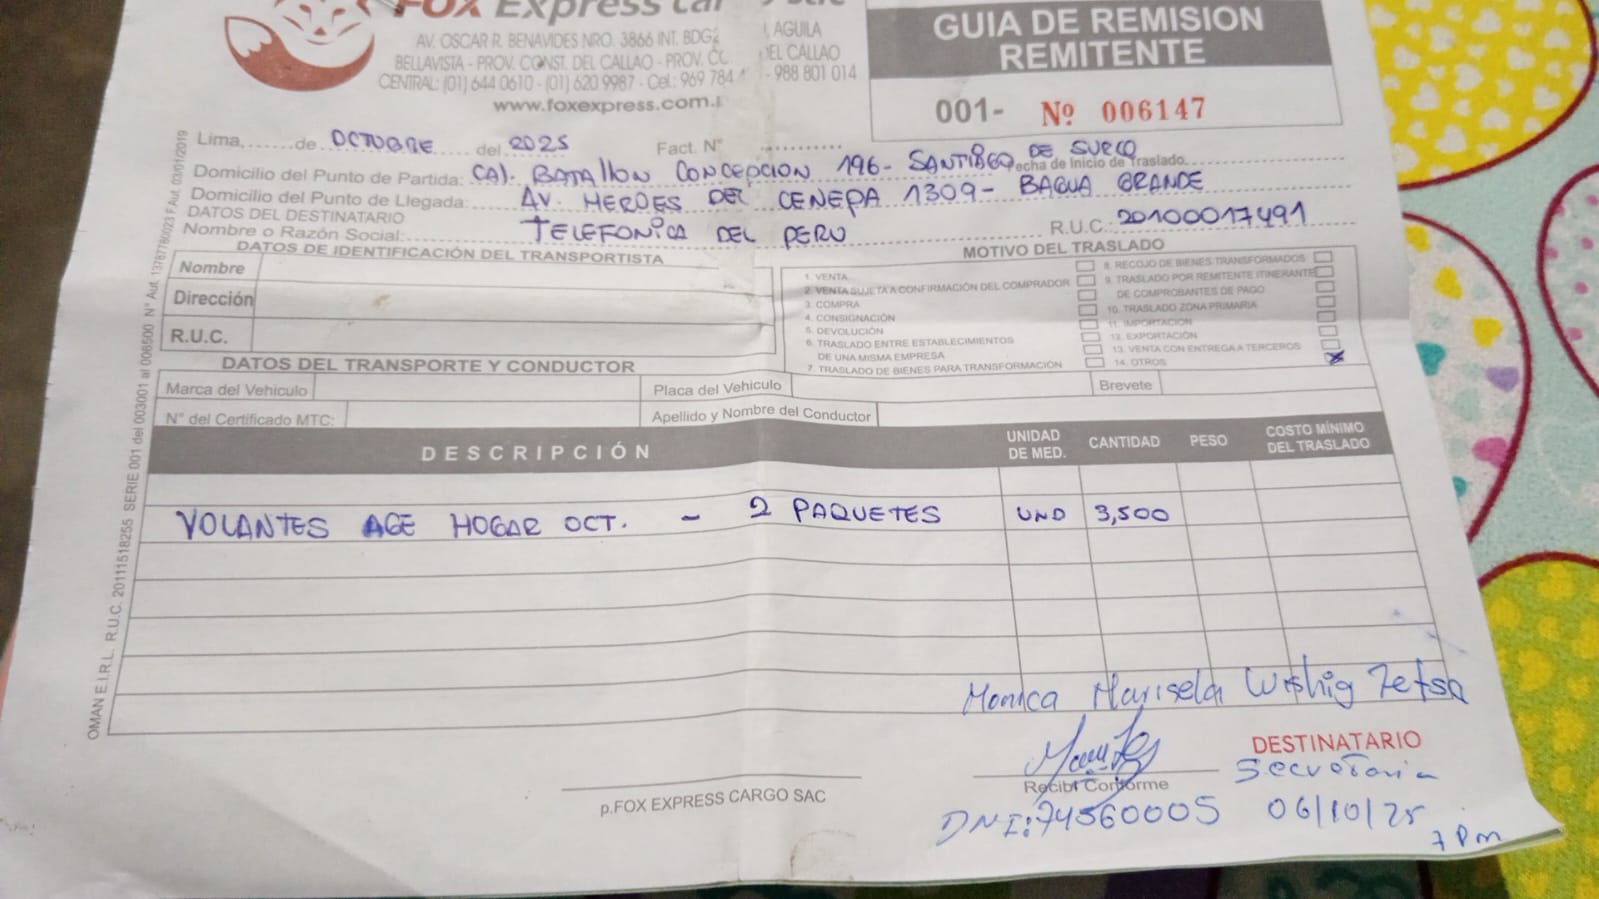 FOX Express Car
AV. OSCAR R. BENAVIDES NRO. 3866 INT. BDG2 AGUILA
BELLAVISTA - PROV. CONST. DEL CALLAO - PROV. CC DEL CALLAO
CENTRAL: (01) 644 0610 - (01) 620 9987 - Cel.: 969 784 - 988 801 014
www.foxexpress.com.
GUIA DE REMISION
REMITENTE
001- Nº 006147
Lima, de OCTUBRE del 2025 Fact. N°
Domicilio del Punto de Partida: CAJ. BATALLON CONCEPCION 196- SANTIAGO DE SURCO echa de Inicio de Traslado
Domicilio del Punto de Llegada: AV. HEROES DEL CENEPA 1309- BAGUA GRANDE
DATOS DEL DESTINATARIO
Nombre o Razón Social: TELEFONICA DEL PERU R.U.C. 20100017491
DATOS DE IDENTIFICACIÓN DEL TRANSPORTISTA
Nombre
Dirección
R.U.C.
MOTIVO DEL TRASLADO
1. VENTA
2. VENTA SUJETA A CONFIRMACIÓN DEL COMPRADOR
3. COMPRA
4. CONSIGNACIÓN
5. DEVOLUCIÓN
6. TRASLADO ENTRE ESTABLECIMIENTOS
DE UNA MISMA EMPRESA
7. TRASLADO DE BIENES PARA TRANSFORMACIÓN
8. RECOJO DE BIENES TRANSFORMADOS
9. TRASLADO POR REMITENTE ITINERANTE
DE COMPROBANTES DE PAGO
10. TRASLADO ZONA PRIMARIA
11. IMPORTACIÓN
12. EXPORTACIÓN
13. VENTA CON ENTREGA A TERCEROS
14. OTROS X
DATOS DEL TRANSPORTE Y CONDUCTOR
Marca del Vehiculo Placa del Vehiculo Brevete
N° del Certificado MTC: Apellido y Nombre del Conductor
DESCRIPCIÓN UNIDAD DE MED. CANTIDAD PESO COSTO MÍNIMO DEL TRASLADO
VOLANTES AGE HOGAR OCT. - 2 PAQUETES UND 3,500
Monica Marisela
DESTINATARIO
Recibí Conforme Secretaria
p.FOX EXPRESS CARGO SAC
DNI:74560005 06/10/25
7 Pm
OMAN E.I.R.L. R.U.C. 20111518255 SERIE 001 del 003001 al 006500 N° Aut. 13787780023 F.Aut. 03/01/2019